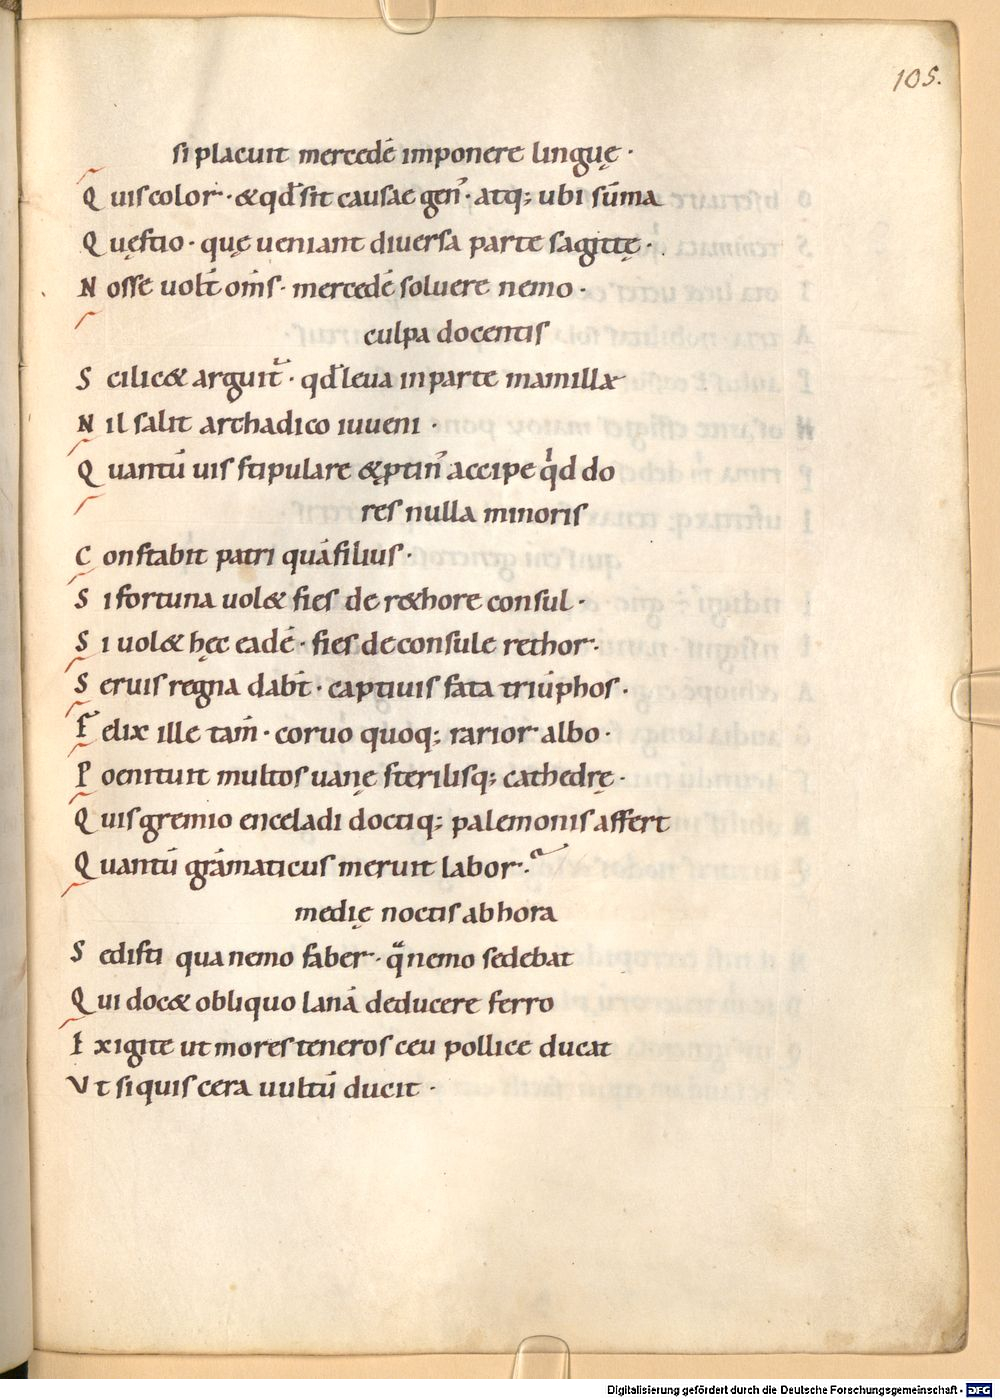 105.
si placuit mercedē imponere linguę·
Quis color·&qđ sit causae geñ·atq; ubi sūma
Quęstio· quę ueniant diuersa parte sagittę·
Nosse uolt̄ om̄s· mercedē soluere nemo·
culpa docentis
Scilic& arguit̄· qđ leua in parte mamillæ
Nil salit archadico iuueni·
Quantū uis stipulare &ptin̄ accipe qͥd do
res nulla minoris
Constabit patri quā filius·
Si fortuna uol& fies de r&hore consul·
Si uol& hęc eadē· fies de consule rethor·
Seruis regna dabt̄· captiuis fata triūphos·
Felix ille tam̄· coruo quoq; rarior albo·
Poenituit multos uanę sterilisq; cathedrę·
Quis gremio enceladi doctiq; palemonis affert
Quantū grāmaticus meruit labor·
medię noctis ab hora
Sedisti qua nemo faber· qͣ nemo sedebat
Qui doc& obliquo lanā deducere ferro
Exigite ut mores teneros ceu pollice ducat
Vt si quis cera uultū ducit·
Digitalisierung gefördert durch die Deutsche Forschungsgemeinschaft - DFG